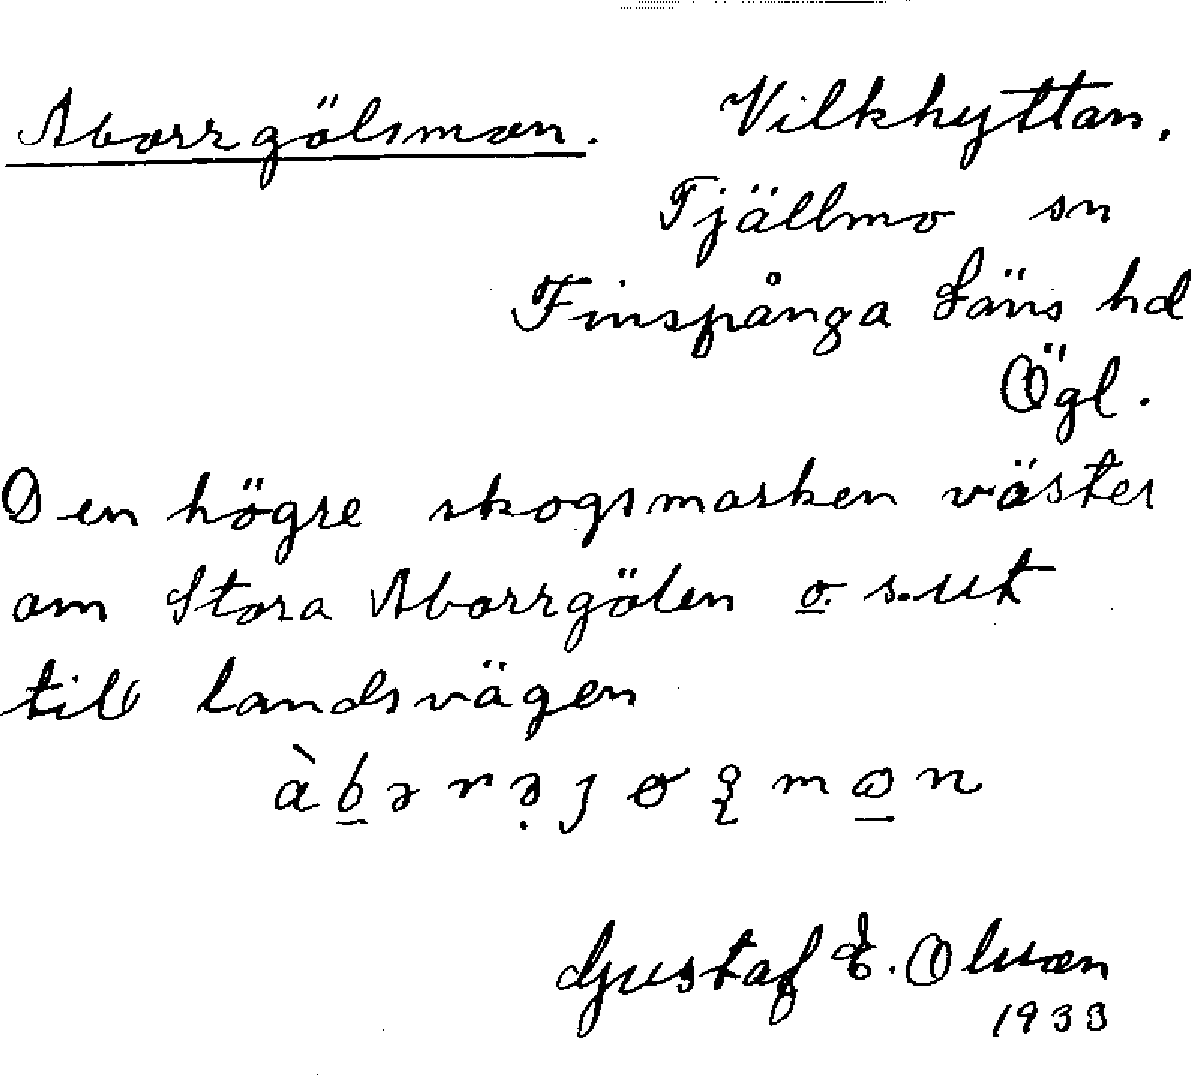 Aborrgölsmon. Vilkhyttan,
Tjällmo sn
Finspånga Läns hd
Ögl.
Den högre skogsmarken väster
om Stora Aborrgölen o. s. ut
till landsvägen
Gustaf E. Olson
1933